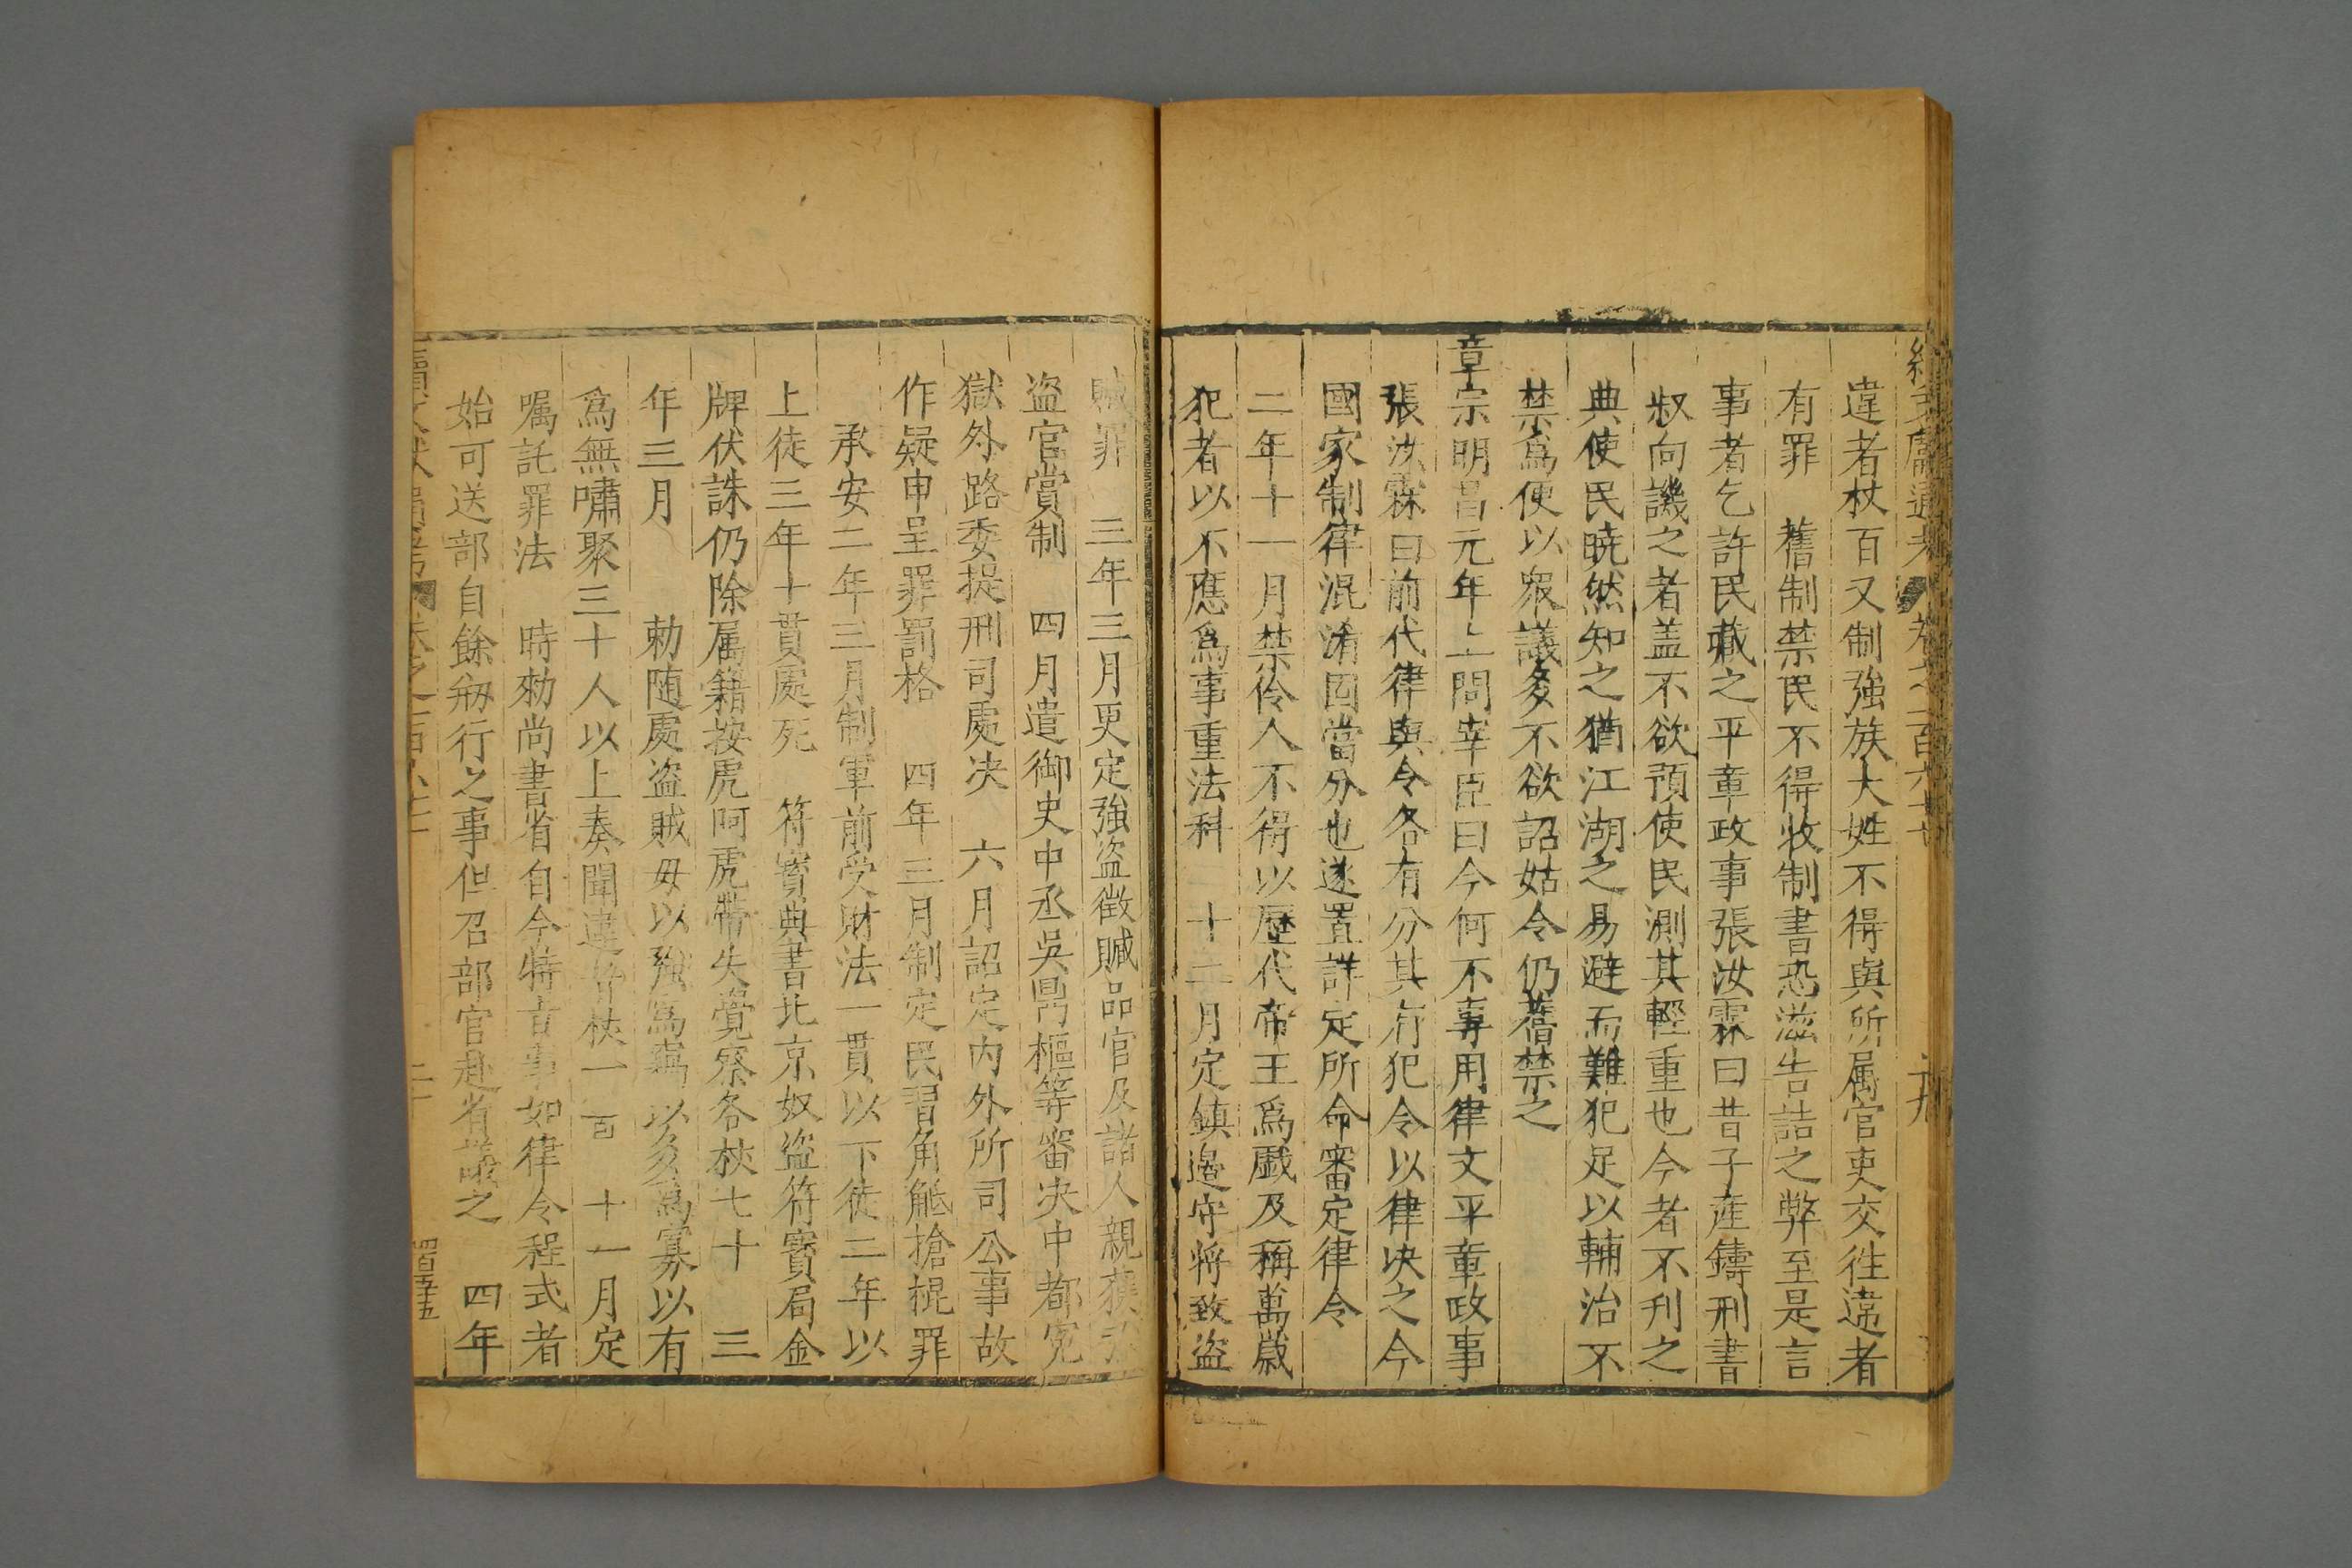 違者杖百又制強族大姓不得與所属官吏交往違者
有罪　舊制禁民不得收制書恐滋告詰之弊至是言
事者乞許民藏之平章政事張汝霖曰昔子産鑄刑書
叔向譏之者盖不欲預使民測其輕重也今者不刋之
典使民曉然知之猶江湖之易避而難犯足以輔治不
禁爲便以衆議多不欲詔姑令仍舊禁之
章宗明昌元年上問宰臣曰今何不專用律文平章政事
張汝霖曰前代律與令各有分其有犯令以律决之今
國家制律混淆固當分也遂置詳定所命審定律令
二年十一月禁伶人不得以歷代帝王爲戲及稱萬歲
犯者以不應爲事重法科　十二月定鎮邉守將致盗
贓罪　三年三月更定強盗徴贓品官及諸人親獲
盗官賞制　四月遣御史中丞吳鼎樞等審决中都寃
獄外路委提刑司處决　六月詔定内外所司公事故
作疑申呈罪罰格　四年三月制定民習角觝搶棍罪
承安二年三月制軍前受財法一貫以下徒二年以
上徒三年十貫處死　符寶典書北京奴盗符寶局金
牌伏誅仍除属籍按虎阿虎帶失覺察各杖七十　三
年三月　勅随處盗賊毋以強爲竊以多爲寡以有
爲無嘯聚三十人以上奏聞違者杖一百　十一月定
嘱託罪法　時勑尚書省自今特旨事如律令程式者
始可送部自餘刱行之事但召部官赴省議之　四年
四百五十五